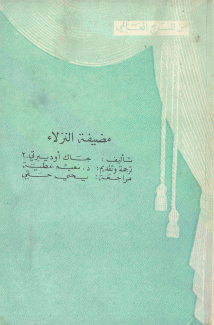 من المسرح العالمي
مضيفة النزلاء
تأليف : جاك أوديبرتي ٢
ترجمة وتقديم : د. نعيم عطية
مراجعة : يحيى حقي